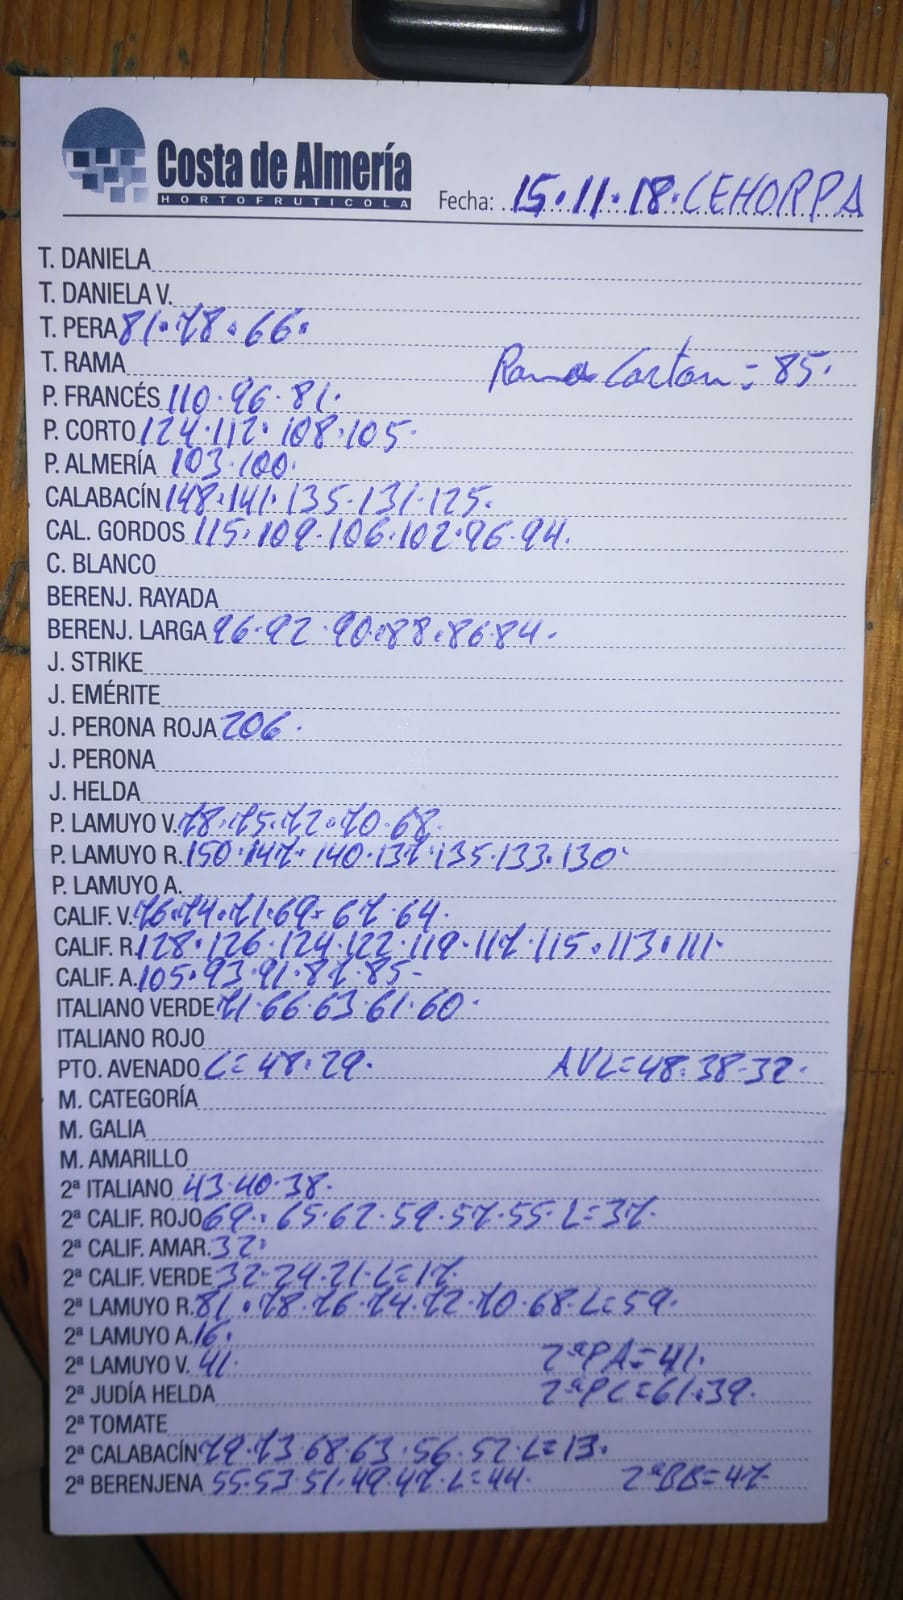 Costa de Almería
HORTOFRUTICOLA
Fecha: 15.11.18. CEHORPA
T. DANIELA
T. DANIELA V.
T. PERA 81.78.66.
T. RAMA Rama Carton = 85.
P. FRANCÉS 110.96.81.
P. CORTO 124.112.108.105.
P. ALMERÍA 103.100.
CALABACÍN 148.141.135.131.125.
CAL. GORDOS 115.109.106.102.96.94.
C. BLANCO
BERENJ. RAYADA
BERENJ. LARGA 96.92.90.88.86.84.
J. STRIKE
J. EMÉRITE
J. PERONA ROJA 206.
J. PERONA
J. HELDA
P. LAMUYO V. 78.75.72.70.68.
P. LAMUYO R. 150.147.140.137.135.133.130.
P. LAMUYO A.
CALIF. V. 76.74.71.69.67.64.
CALIF. R. 128.126.124.122.119.117.115.113.111.
CALIF. A. 105.93.91.87.85.
ITALIANO VERDE 71.66.63.61.60.
ITALIANO ROJO
PTO. AVENADO L=48.29. AVL=48.38.32.
M. CATEGORÍA
M. GALIA
M. AMARILLO
2ª ITALIANO 43.40.38.
2ª CALIF. ROJO 69.65.62.59.57.55.L=37.
2ª CALIF. AMAR. 32.
2ª CALIF. VERDE 32.24.21.L=17.
2ª LAMUYO R. 81.78.76.74.72.70.68.L=59.
2ª LAMUYO A. 16.
2ª LAMUYO V. 41. 2ªPA=41.
2ª JUDÍA HELDA 2ªPC=61.39.
2ª TOMATE
2ª CALABACÍN 79.73.68.63.56.52.L=13.
2ª BERENJENA 55.53.51.49.47.L=44. 2ªBB=47